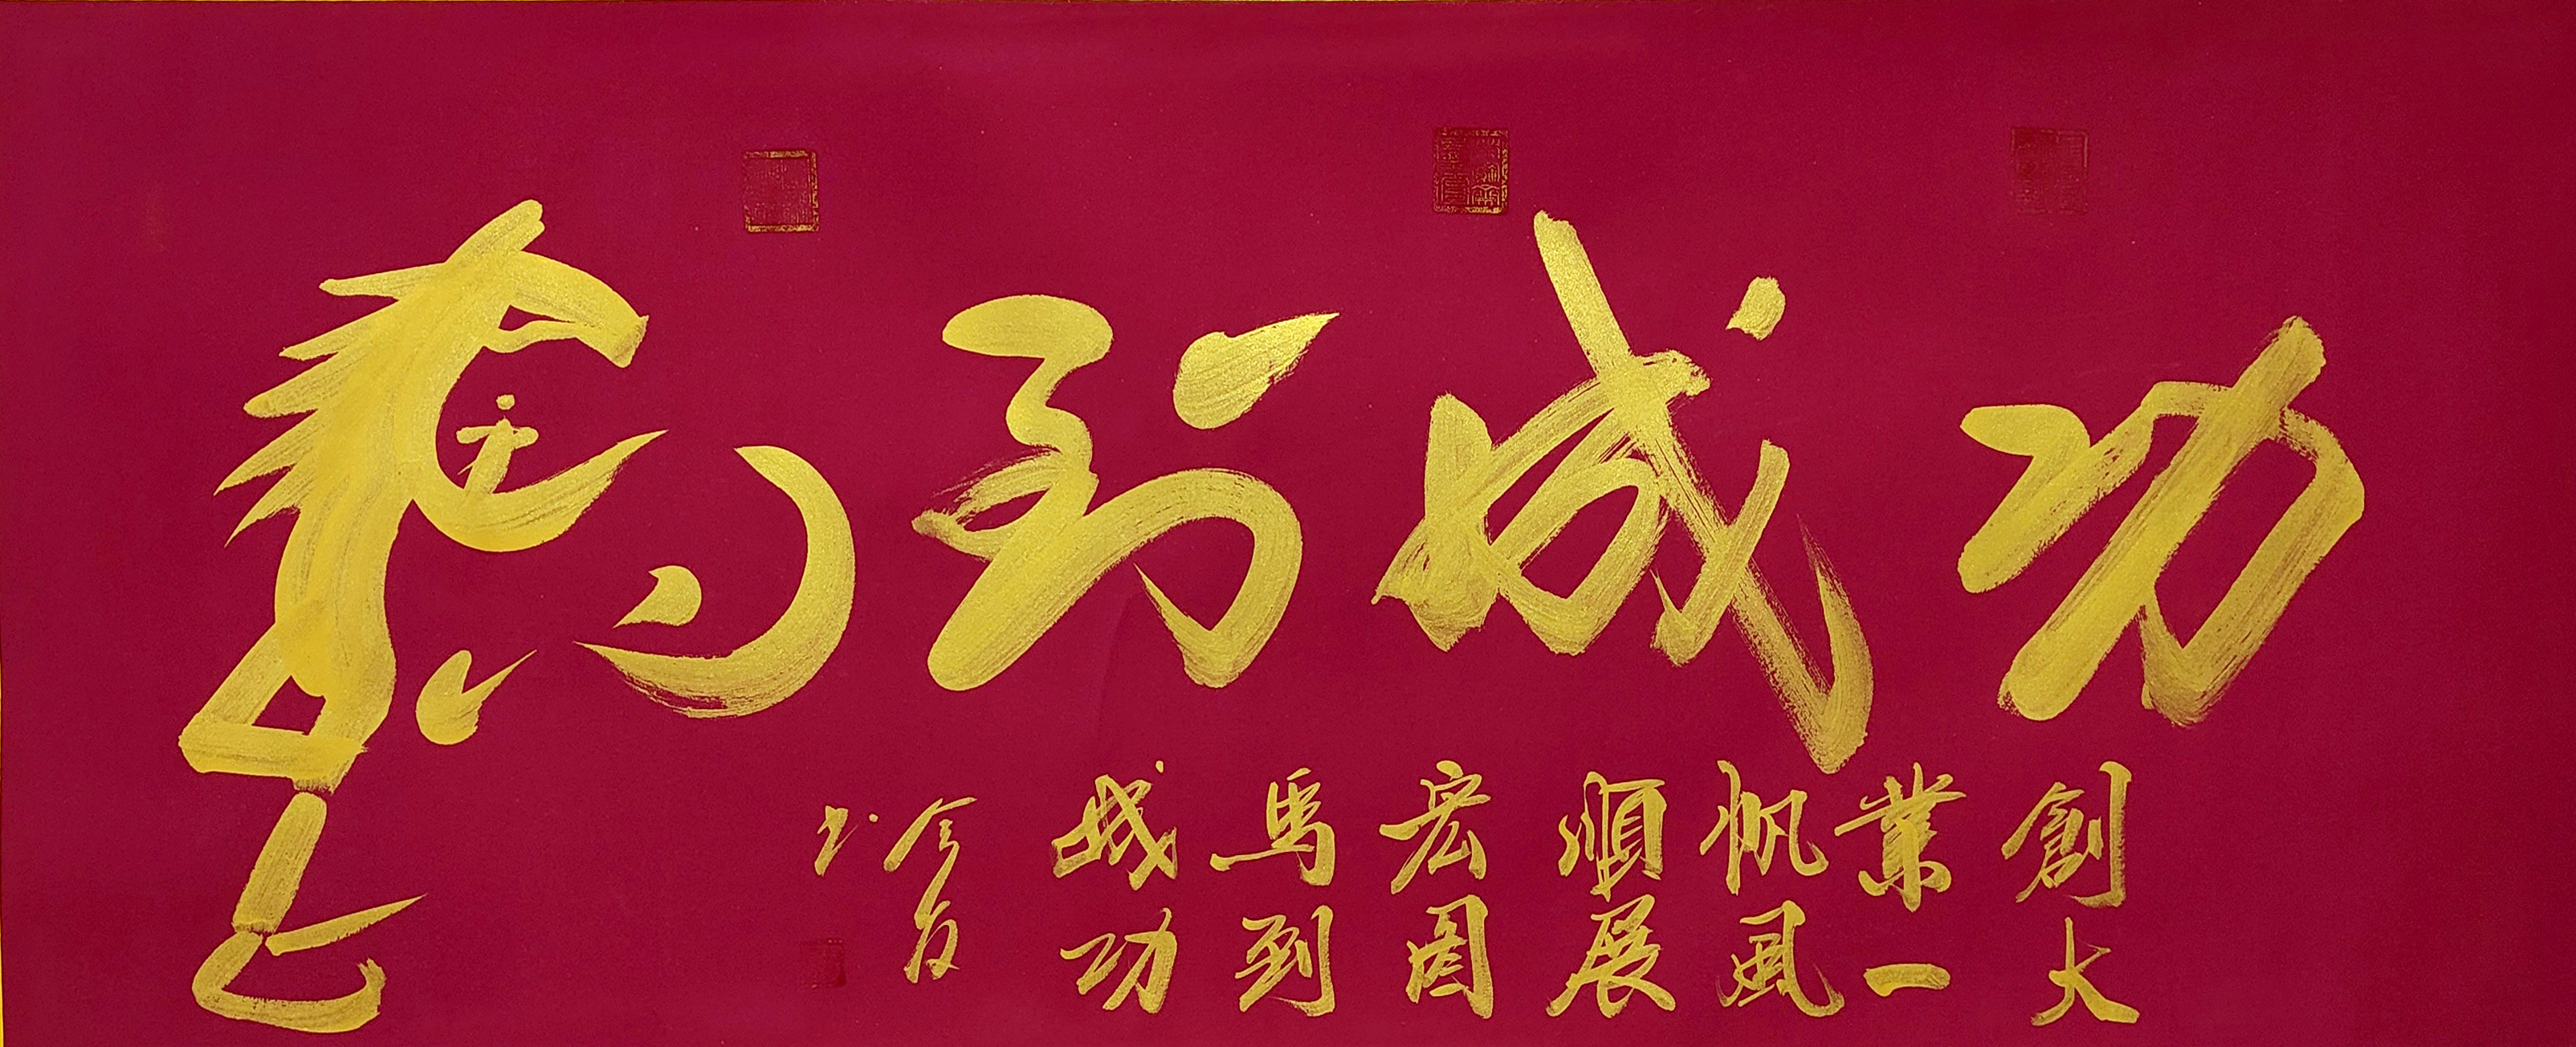 馬到成功
創大
業一
帆風
順展
宏圖
馬到
成功